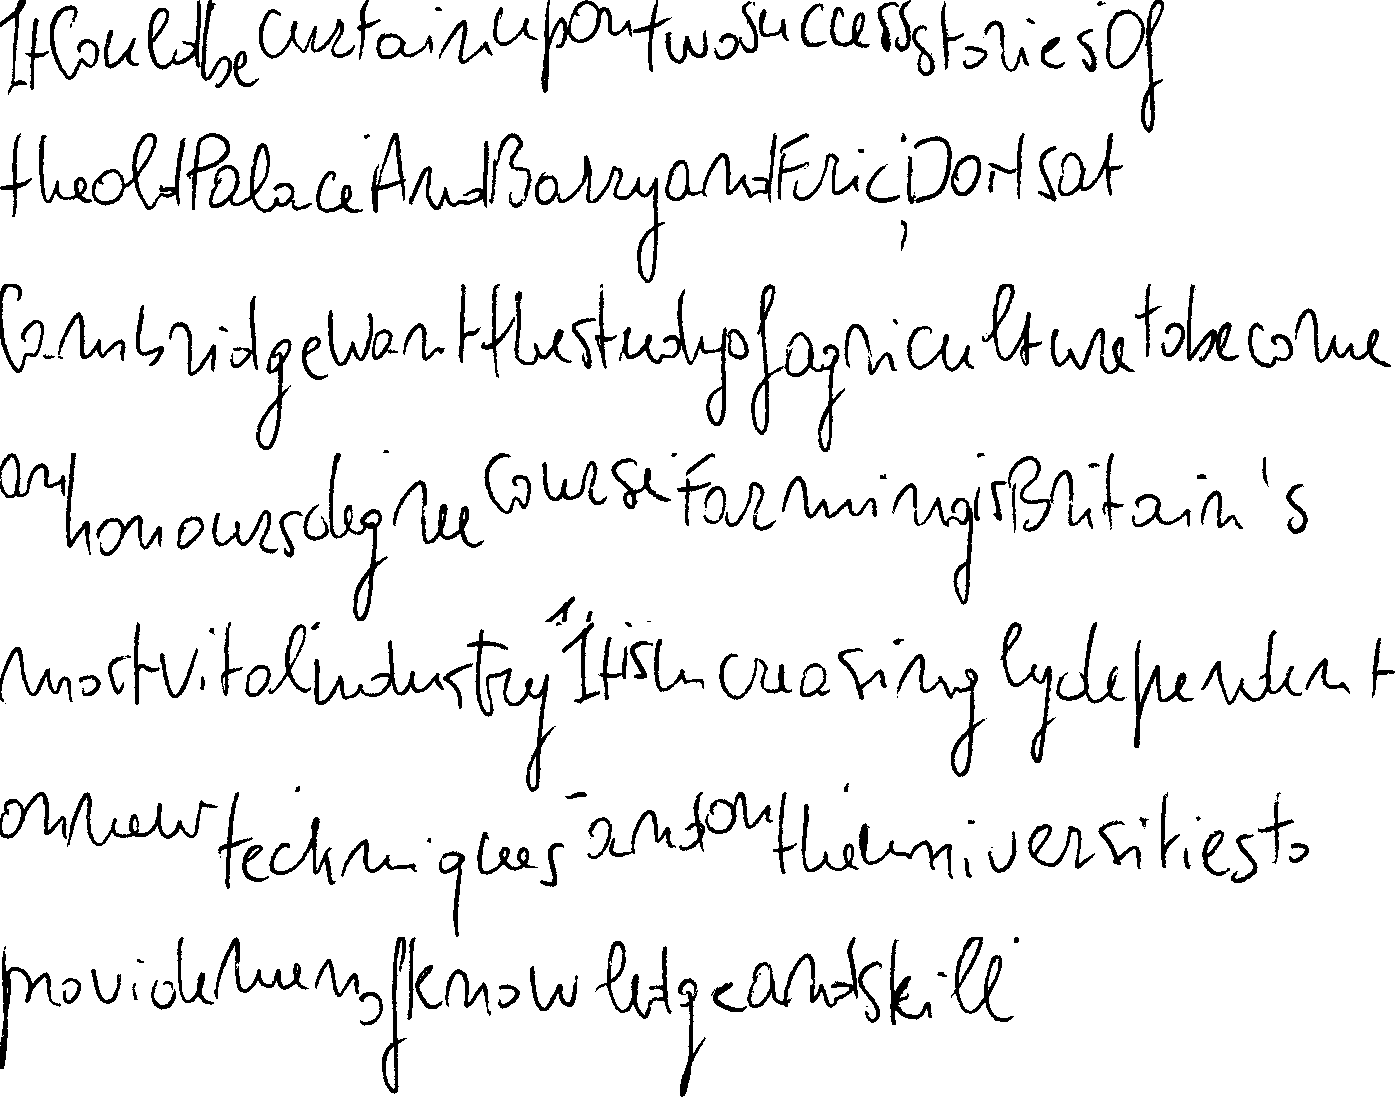 It could be curtain up on two success stories Of
the old Palace. And Barry and Eric, Dons at
Cambridge want the study of agriculture to become
an honours degree course. Farming is Britain's
most vital industry. It is increasingly dependent
on new techniques - and on the universities to
provide men of knowledge and skill.